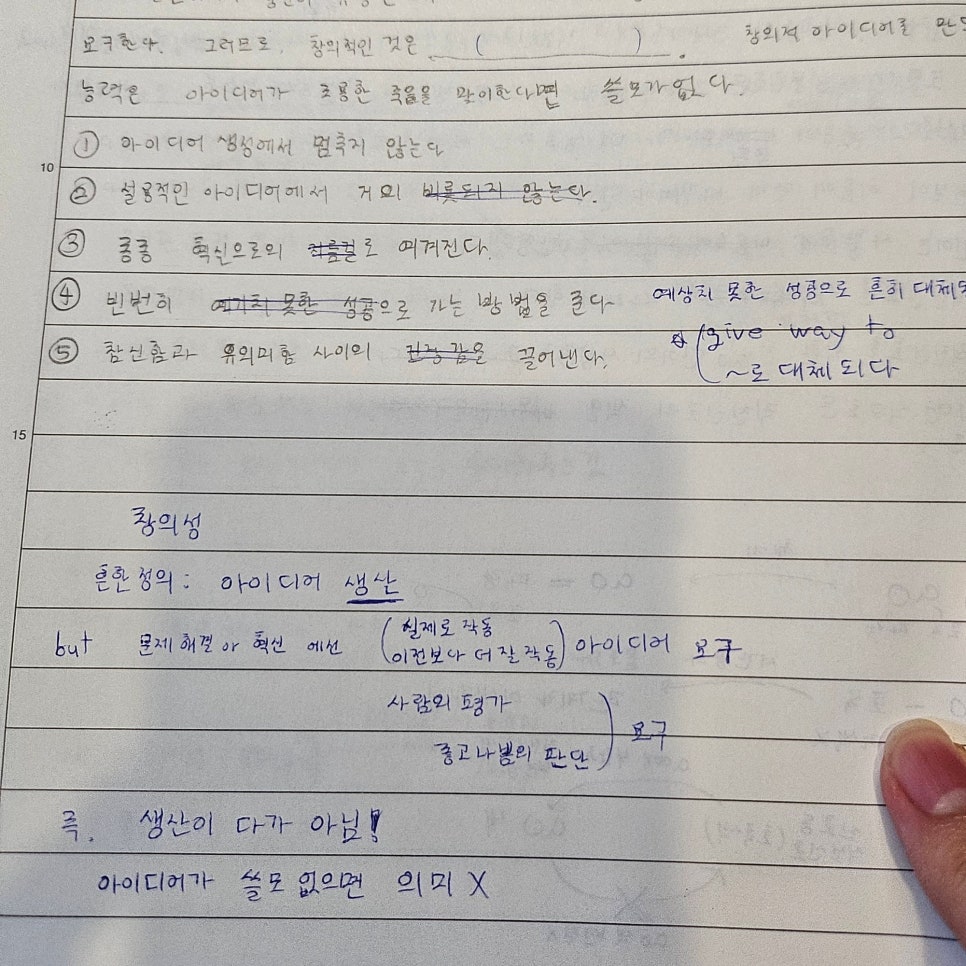 요구한다. 그러므로, 창의적인 것은 ( ). 창의적 아이디어를 만드
능력은 아이디어가 조용한 죽음을 맞이한다면 쓸모가 없다.
① 아이디어 생성에서 멈추지 않는다
10
② 실용적인 아이디어에서 거의 비롯되지 않는다.
③ 종종 혁신으로의 지름길로 여겨진다.
④ 빈번히 예기치 못한 성공으로 가는 방법을 준다 예상치 못한 성공으로 흔히 대체되
⑤ 참신함과 유의미함 사이의 긴장감을 끌어낸다.
give way to
~로 대체되다
15
창의성
흔한 정의: 아이디어 생산
but 문제해결이나 혁신에선 (실제로 작동
이전보다 더 잘 작동) 아이디어 요구
사람의 평가
좋고 나쁨의 판단) 요구
즉, 생산이 다가 아님!
아이디어가 쓸모 없으면 의미 X